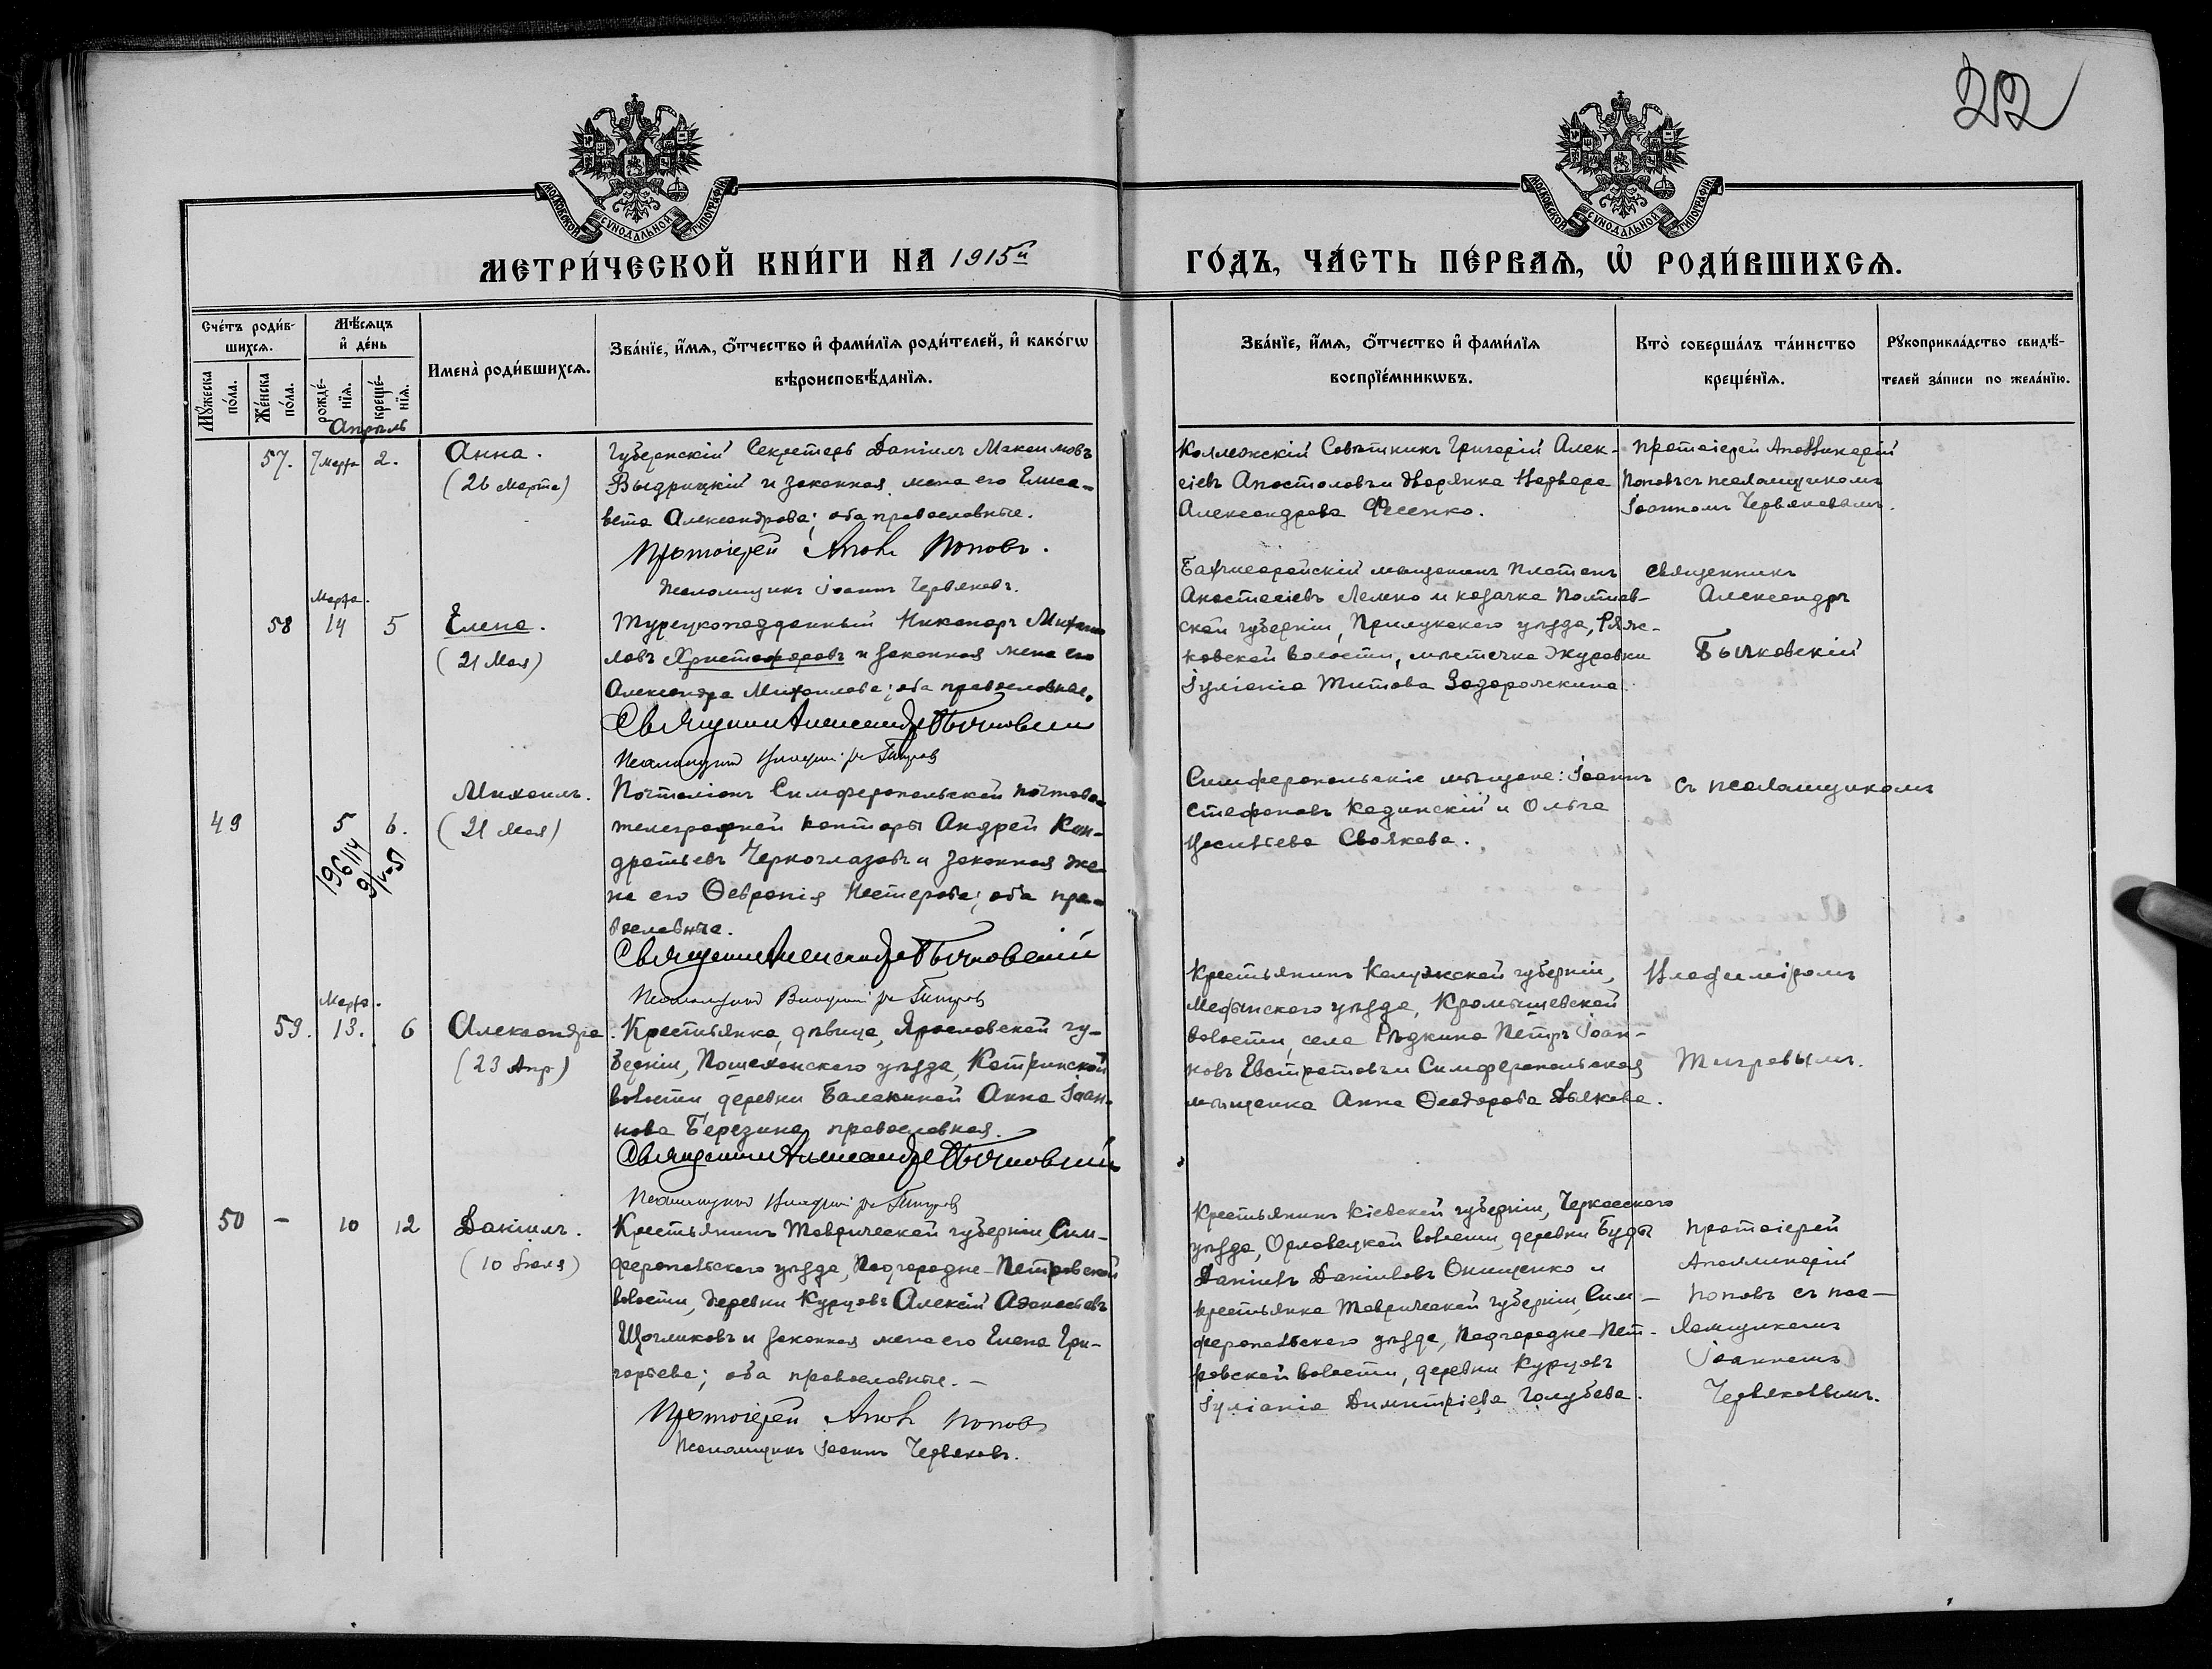 22
МОСКОВСКОЙ СУНОДАЛЬНОЙ ТИПОГРАФІИ
МОСКОВСКОЙ СУНОДАЛЬНОЙ ТИПОГРАФІИ
МЕТРИ́ЧЕСКОЙ КНИ́ГИ НА 1915й
ГО́ДЪ, ЧА́СТЬ ПЕ́РВАѦ, Ѡ҆ РОДИ́ВШИХСѦ.
Сче́тъ роди́в-
шихсѧ.
Мꙋ́жеска по́ла.
Же́нска по́ла.
Мѣ́сѧцъ
и҆ де́нь
рожде́-
нїѧ.
креще́-
нїѧ.
Имена̀ роди́вшихсѧ.
Зва́нїе, и҆́мѧ, ѻ҆́тчество и҆ фами́лїѧ роди́телей, и҆ како́гѡ
вѣроисповѣ́данїѧ.
Зва́нїе, и҆́мѧ, ѻ҆́тчество и҆ фами́лїѧ
воспрїе́мникѡвъ.
Кто̀ соверша́лъ та́инство
креще́нїѧ.
Рꙋкоприкла́дство свидѣ́-
телей за́писи по жела́нїю.
Апрѣль
57. 7 Марта 2.
Анна.
(26 Марта)
Губернскій Секретарь Даніилъ Максимовъ
Выдрицкій и законная жена его Елиса-
вета Александрова; оба православные.
Протоіерей Апол. Поповъ.
Псаломщикъ Іоаннъ Червяковъ.
Коллежскій Совѣтникъ Григорій Алек-
сіевъ Апостоловъ и дворянка Варвара
Александрова Фесенко.
Протоіерей Аполлинарій
Поповъ съ псаломщикомъ
Іоанномъ Червяковымъ.
Марта.
58 14 5
Елена.
(21 Мая)
Турецкоподданный Никаноръ Михаи-
ловъ Христофоровъ и законная жена его
Александра Михаилова; оба православные.
Священникъ Александръ Бычковскій
Псаломщикъ Владиміръ Тигровъ
Бахчисарайскій мѣщанинъ Платонъ
Анастасіевъ Лемко и казачка Полтав-
ской губерніи, Прилукскаго уѣзда,
ковской волости, мѣстечка Журавки
Іуліанія Титова Задорожкина.
Священникъ
Александръ
Бычковскій
49 5 6.
Михаилъ.
(21 Мая)
196/14
9/V-51
Почталіонъ Симферопольской почтово-
телеграфной конторы Андрей Кон-
дратьевъ Черноглазовъ и законная же-
на его Ѳевронія Нестерова; оба пра-
вославные.
Священникъ Александръ Бычковскій
Псаломщикъ Владиміръ Тигровъ
Симферопольскіе мѣщане: Іоаннъ
Стефановъ Кадинскій и Ольга
Васильева Своякова.
съ псаломщикомъ
Марта.
59. 13. 6
Александра.
(23 Апр)
Крестьянка, дѣвица, Ярославской гу-
берніи, Пошехонскаго уѣзда,
волости деревни Балакиной Анна Іоан-
нова Березина, православная.
Священникъ Александръ Бычковскій
Псаломщикъ Владиміръ Тигровъ
Крестьянинъ Калужской губерніи,
Медынскаго уѣзда, Кромышевской
волости, села Рѣдкина Петръ Іоан-
новъ Евстратовъ и Симферопольская
мѣщанка Анна Ѳеодорова Дьякова.
Владиміромъ
Тигровымъ.
50 - 10 12
Даніилъ.
(10 Іюля)
Крестьянинъ Таврической губерніи, Сим-
феропольскаго уѣзда, Подгородне-Петровской
волости, деревни Курцовъ Алексій Аѳанасьевъ
Щегликовъ и законная жена его Елена Гри-
горьева; оба православные.-
Протоіерей Апол. Поповъ
Псаломщикъ Іоаннъ Червяковъ.
Крестьянинъ Кіевской губерніи, Черкасскаго
уѣзда, Орловецкой волости, деревни Буды
Даніилъ Даніиловъ Онищенко и
крестьянка Таврической губерніи, Сим-
феропольскаго уѣзда, Подгородне-Пет-
ровской волости, деревни Курцовъ
Іуліанія Димитріева Голубева.
Протоіерей
Аполлинарій
Поповъ съ пса-
ломщикомъ
Іоанномъ
Червяковымъ.